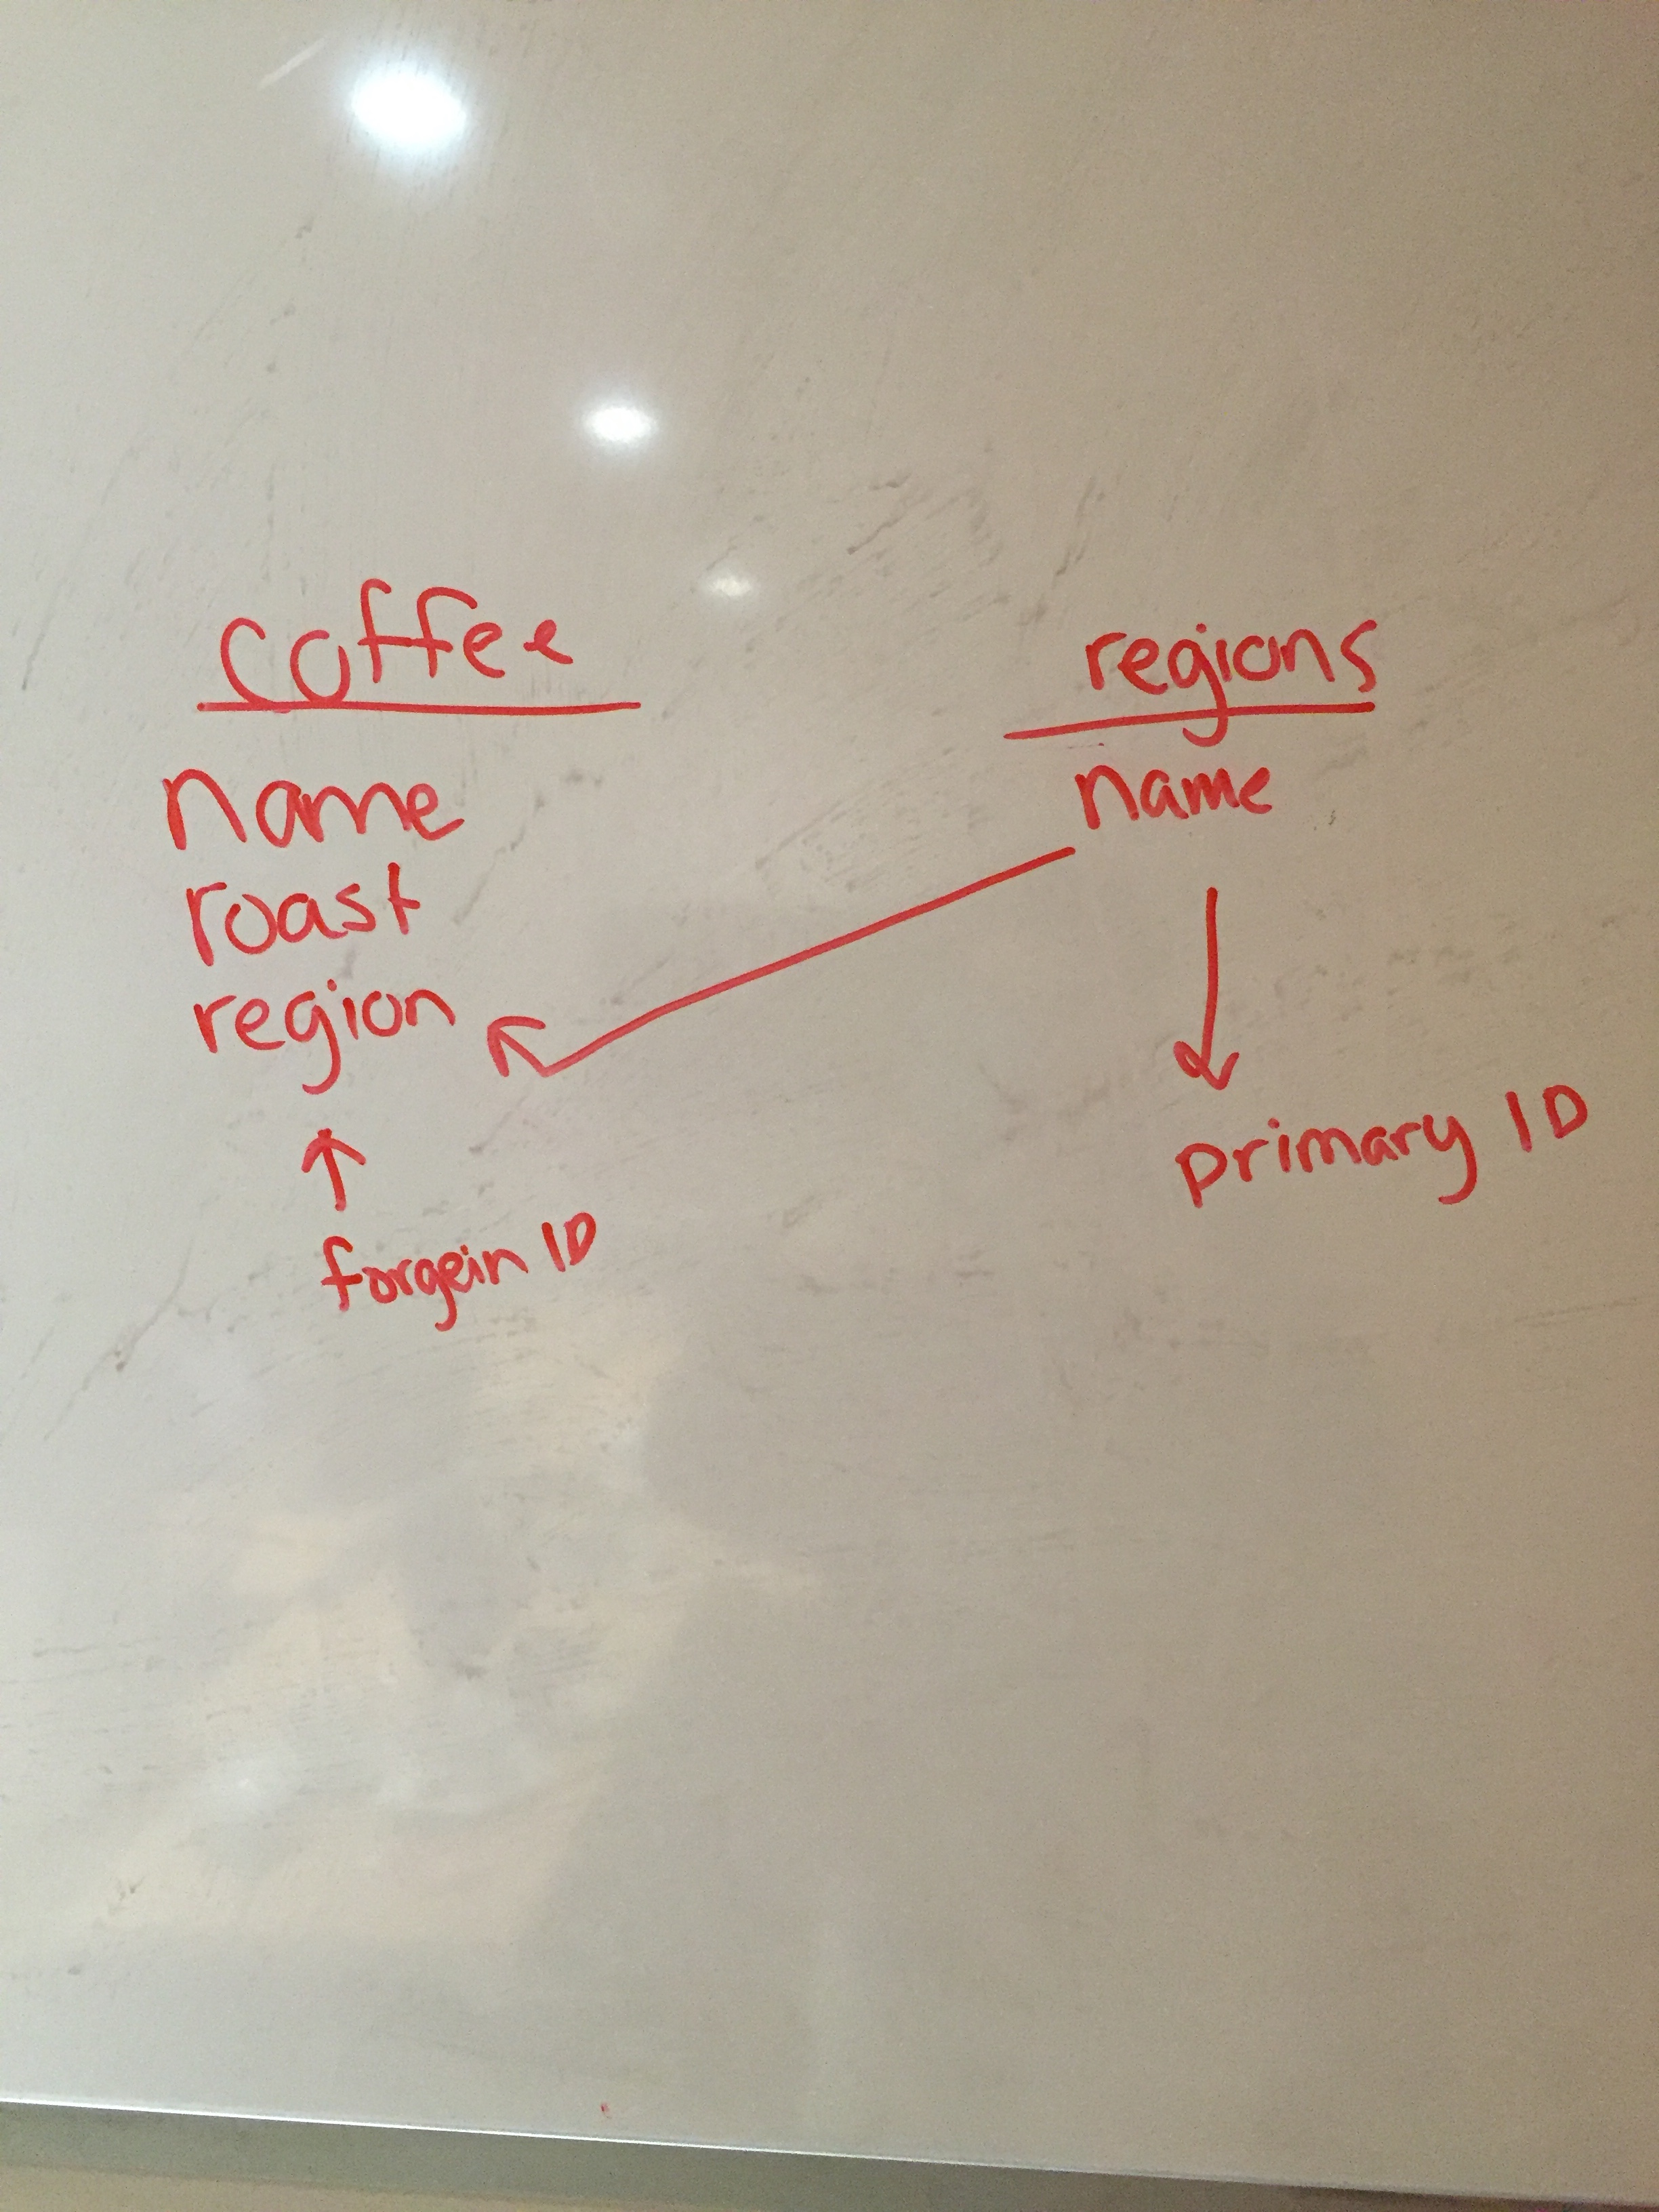 coffee
name
roast
region
forgein ID
regions
name
primary ID